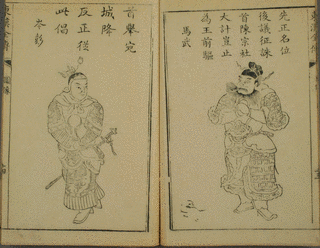 先正名位
後議征誅
首陳宗社
大計豈止
為王前驅
馬武
首舉宛
城降
反正從
此倡
岑彭